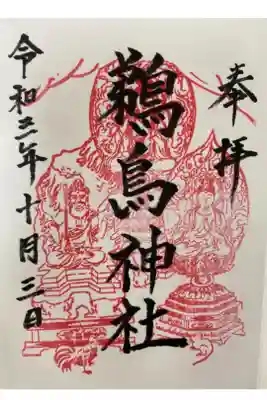 奉拝
鵜鳥神社
令和三年十月三日